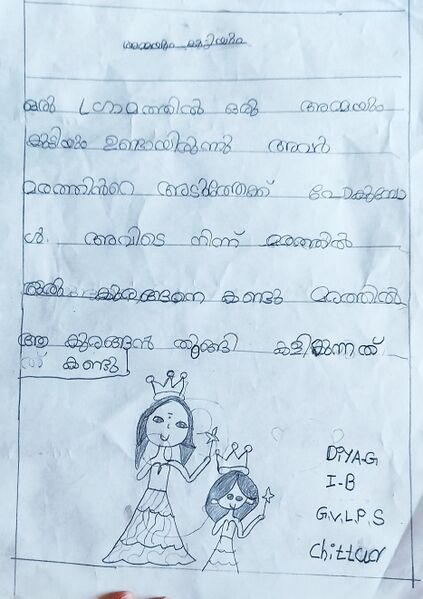 അമ്മയും കുട്ടിയും
ഒരു ഗ്രാമത്തിൽ ഒരു അമ്മയും
കുട്ടിയും ഉണ്ടായിരുന്നു അവർ
മരത്തിൻറെ അടുത്തേക്ക് പോകുമ്പോ
ൾ. അവിടെ നിന്ന് മരത്തിൽ
ഒരു കുരങ്ങനെ കണ്ടു മരത്തിൽ
ആ കുരങ്ങൻ തൂങ്ങി കളിക്കുന്നത്
ത് കണ്ടു
DIYA-G
I-B
G.V.L.P.S
Chittur